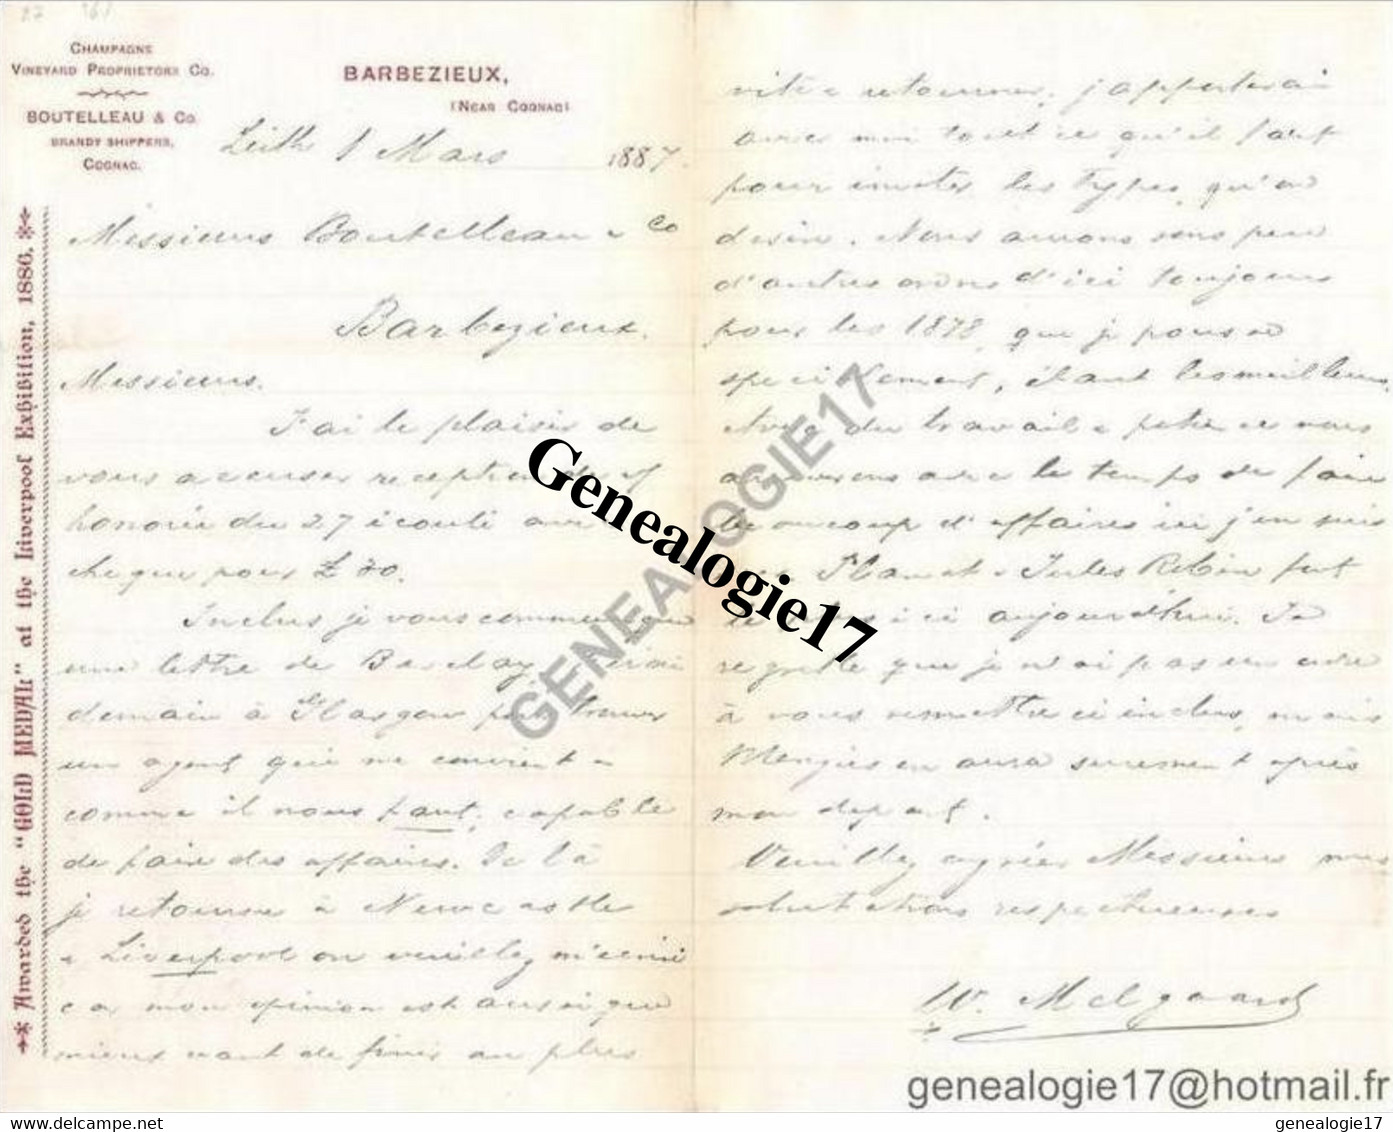 CHAMPAGNE
VINEYARD PROPRIETORS CO.
BOUTELLEAU & CO
BRANDY SHIPPERS,
COGNAC.
BARBEZIEUX,
(NEAR COGNAC)
Leith 1 Mars 1887
Awarded the "GOLD MEDAL" at the Liverpool Exhibition, 1886.
Messieurs Boutelleau & Co
Barbezieux.
Messieurs.
J'ai le plaisir de
vous accuser reception
honorée du 27 écoulé
cheque pour £
Inclus je vous
une lettre de Barclay
demain à Glasgow
un agent qui me convient &
comme il nous faut, capable
de faire des affaires. De là
je retourne à Newcastle
& Liverpool ou veuillez
car mon opinion est aussi que
mieux vaut de finir au plus
vite & retourner. j'apporterai
avec moi tout ce qu'il faut
pour imiter les types qu'on
désire. Nous aurons sous peu
d'autres ordres d'ici toujours
pour les 1878, que je pousse
specialement, étant les meilleurs
du travail &
avec le temps de faire
beaucoup d'affaires ici j'en suis
Planat & Jules Robin font
ici aujourd'hui. Je
regrette que je n'ai pas un ordre
à vous remettre ci inclus, mais
Menzies en aura surement après
mon depart.
Veuillez agréer Messieurs mes
salutations respectueuses
W. Melgaard
Genealogie17
GENEALOGIE17
genealogie17@hotmail.fr
genealogie17